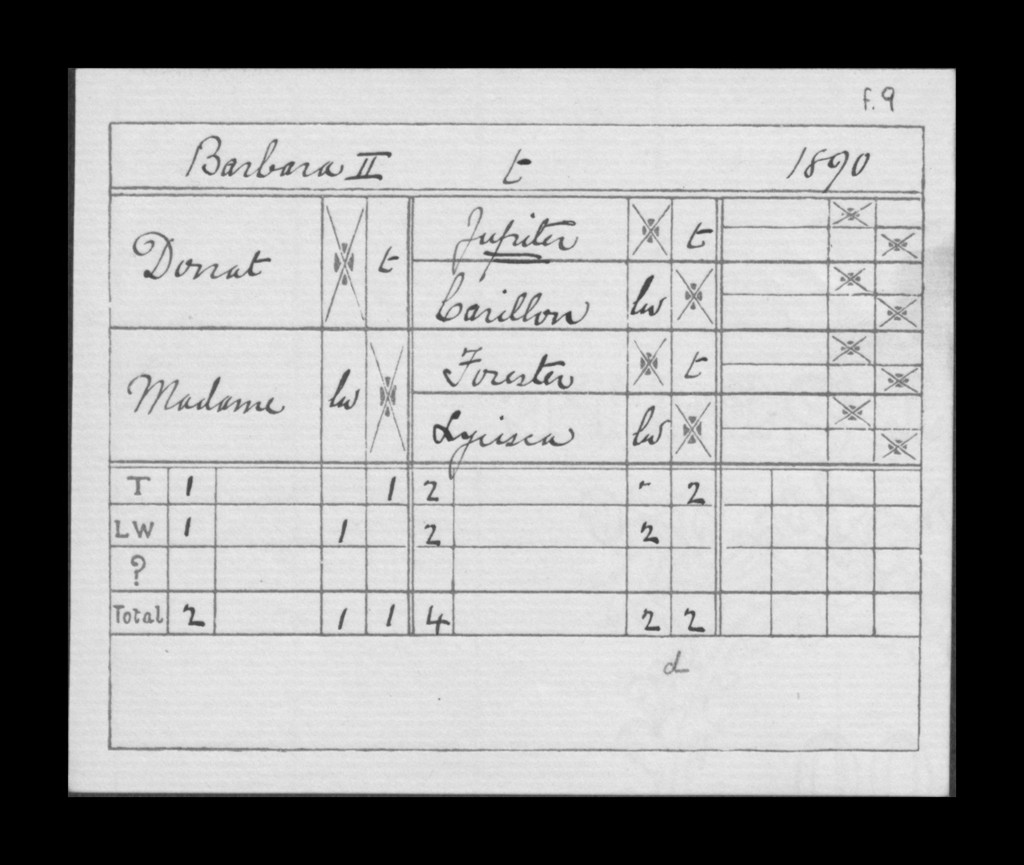 f. 9
Barbara II t 1890
Donat t
Jupiter t
Carillon lw
Madame lw
Forester t
Lycisca lw
T 1 1 2 - 2
LW 1 1 2 2
?
Total 2 1 1 4 2 2
d